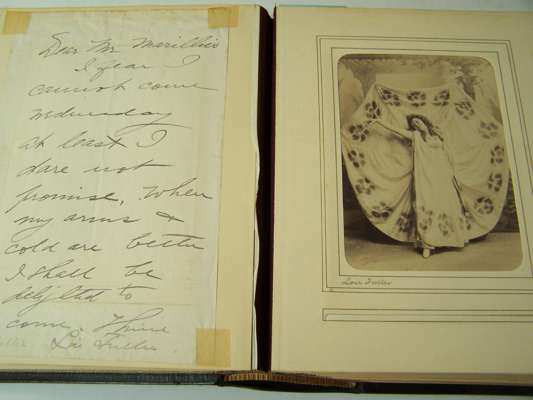 Dear Mr Marillier
I fear I
cannot come
Wednesday
at least I
dare not
promise. When
my arms &
cold are better
I shall be
delighted to
come. Thine
Loie Fuller
Loie Fuller